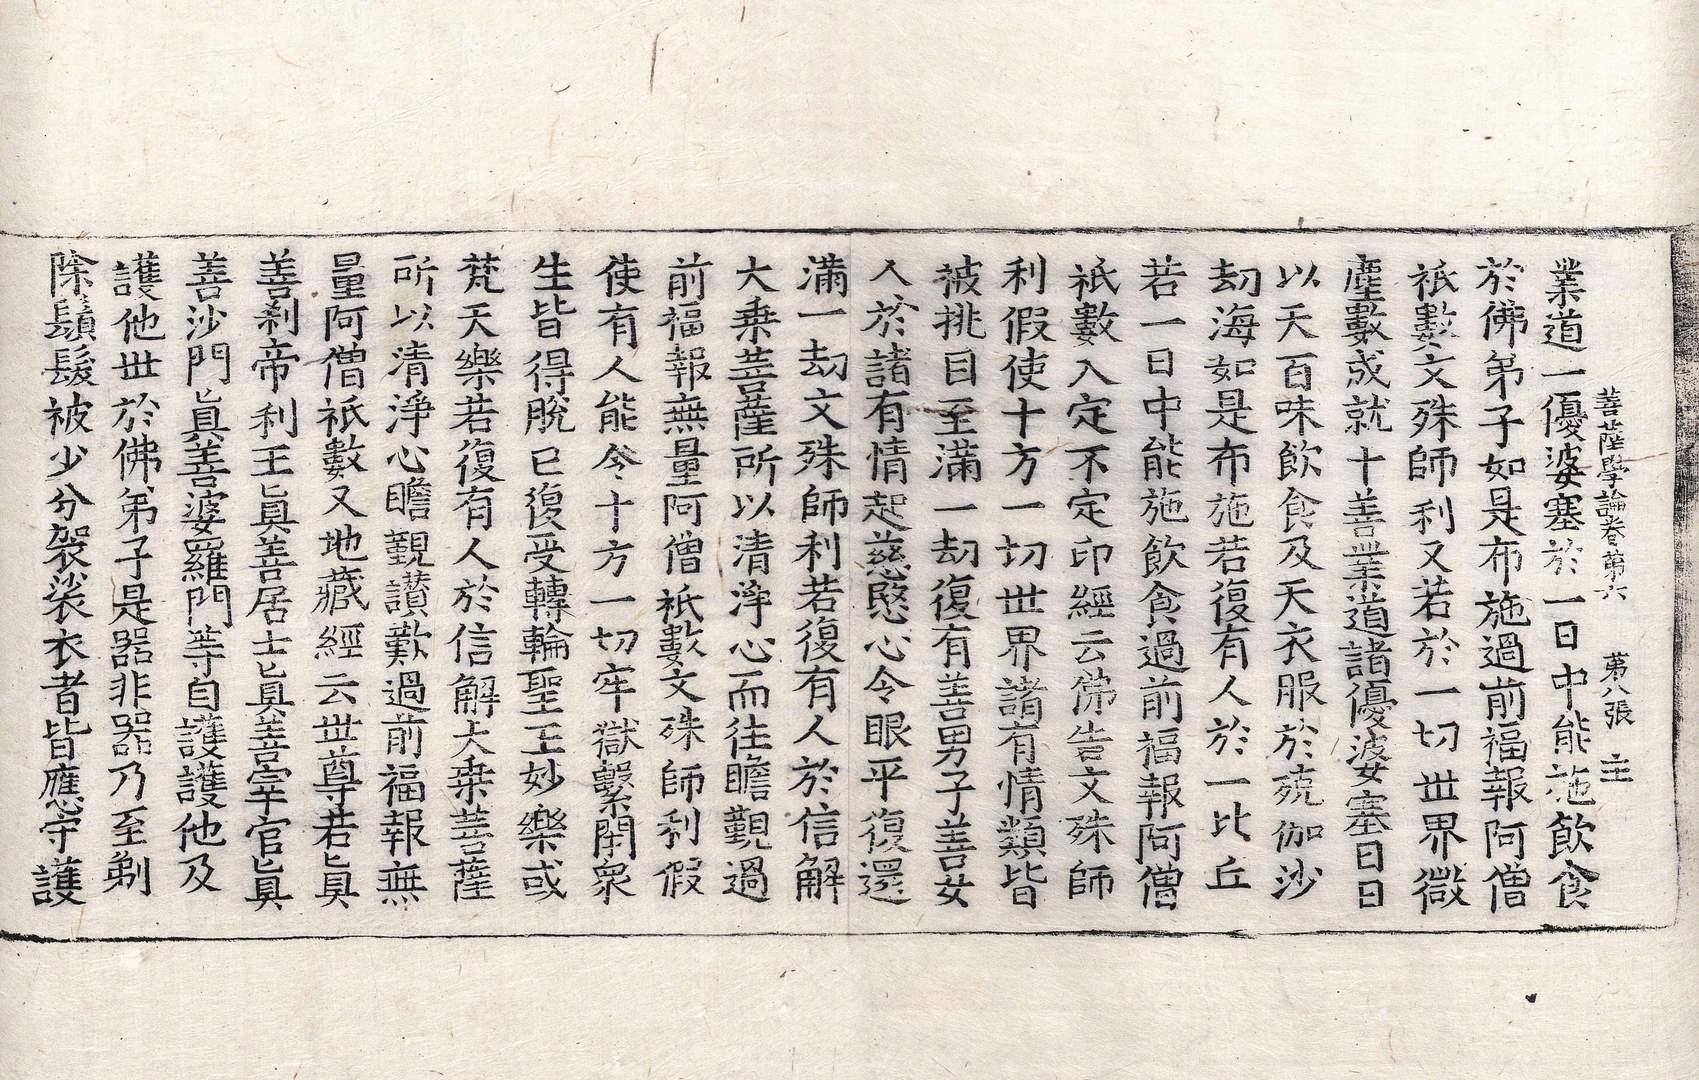 菩薩學論卷第六　第八張　主
業道一優婆塞於一日中能施飲食
於佛弟子如是布施過前福報阿僧
祇數文殊師利又若於一切世界微
塵數或就十善業道諸優婆塞日日
以天百味飲食及天衣服於殑伽沙
劫海如是布施若復有人於一比丘
若一日中能施飲食過前福報阿僧
祇數入定不定印經云佛告文殊師
利假使十方一切世界諸有情類皆
被挑目至滿一劫復有善男子善女
人於諸有情起慈愍心令眼平復還
滿一劫文殊師利若復有人於信解
大乗菩薩所以清淨心而往瞻覲過
前福報無量阿僧祇數文殊師利假
使有人能令十方一切牢獄繫閇衆
生皆得脫已復受轉輪聖王妙樂或
梵天樂若復有人於信解大乗菩薩
所以清淨心瞻覲讃歎過前福報無
量阿僧祇數又地藏經云世尊若眞
善剎帝利王眞善居士眞善宰官眞
善沙門眞善婆羅門等自護護他及
護他世於佛弟子是器非器乃至剃
除鬚髮被少分袈裟衣者皆應守護